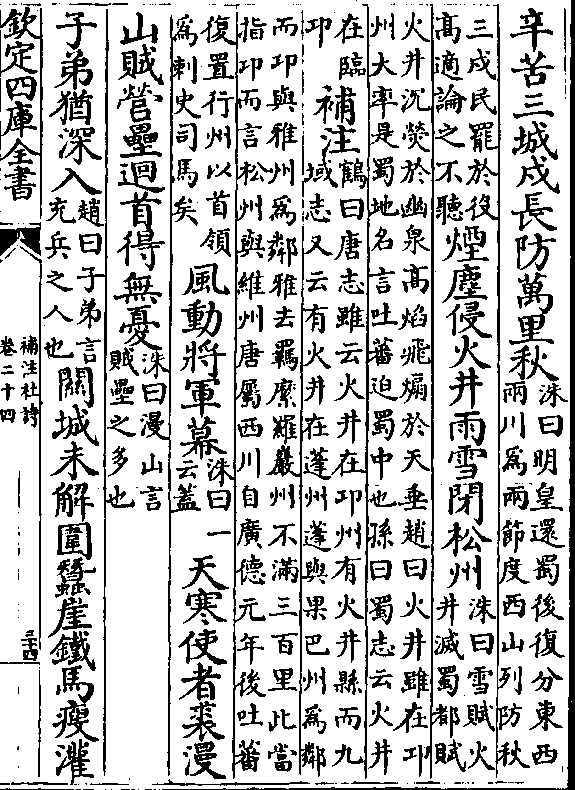 辛苦三城戍長防萬里秋
洙曰明皇還蜀後復分東西
兩川為兩節度西山列防秋
三戍民罷於役
高適論之不聽
煙塵侵火井雨雪閉松州
洙曰雪賦火
井滅蜀都賦
火井沉熒於幽泉高焰飛煽於天垂趙曰火井雖在卭
州大率是蜀地名言吐蕃迫蜀中也孫曰蜀志云火井
在臨
卭
補注
鶴曰唐志雖云火井在卭州有火井縣而九
域志又云有火井在蓬州蓬與果巴州為鄰
而卭與雅州為鄰雅去羈縻羅巖州不滿三百里此當
指卭而言松州與維州唐屬西川自廣德元年後吐蕃
復置行州以首領
為刺史司馬矣
風動將軍幕
洙曰一
云蓋
天寒使者裘漫
山賊營壘迴首得無憂
洙曰漫山言
賊壘之多也
子弟猶深入
趙曰子弟言
充兵之人也
關城未解圍蠶崖鐵馬瘦灌
欽定四庫全書
補注杜詩
卷二十四
三十四